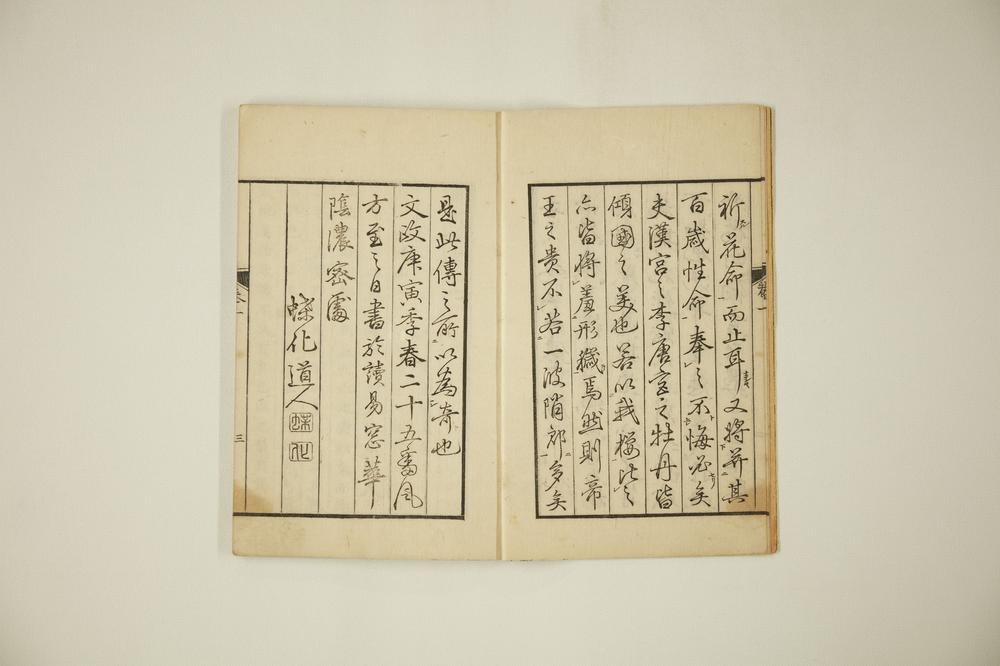 祈花命而止耳又將并其
百歲性命奉之不悔必矣
夫漢宮之李唐宮之牡丹皆
傾國之美也若以我櫻比之
亦皆將羞形慚焉然則帝
王之貴不若一波陗郎多矣
是此傳之所以為奇也
文政庚寅季春二十五番風
方至之日書於讀易窓華
陰濃密處
蝶化道人
蝶化
卷一
卷一
三